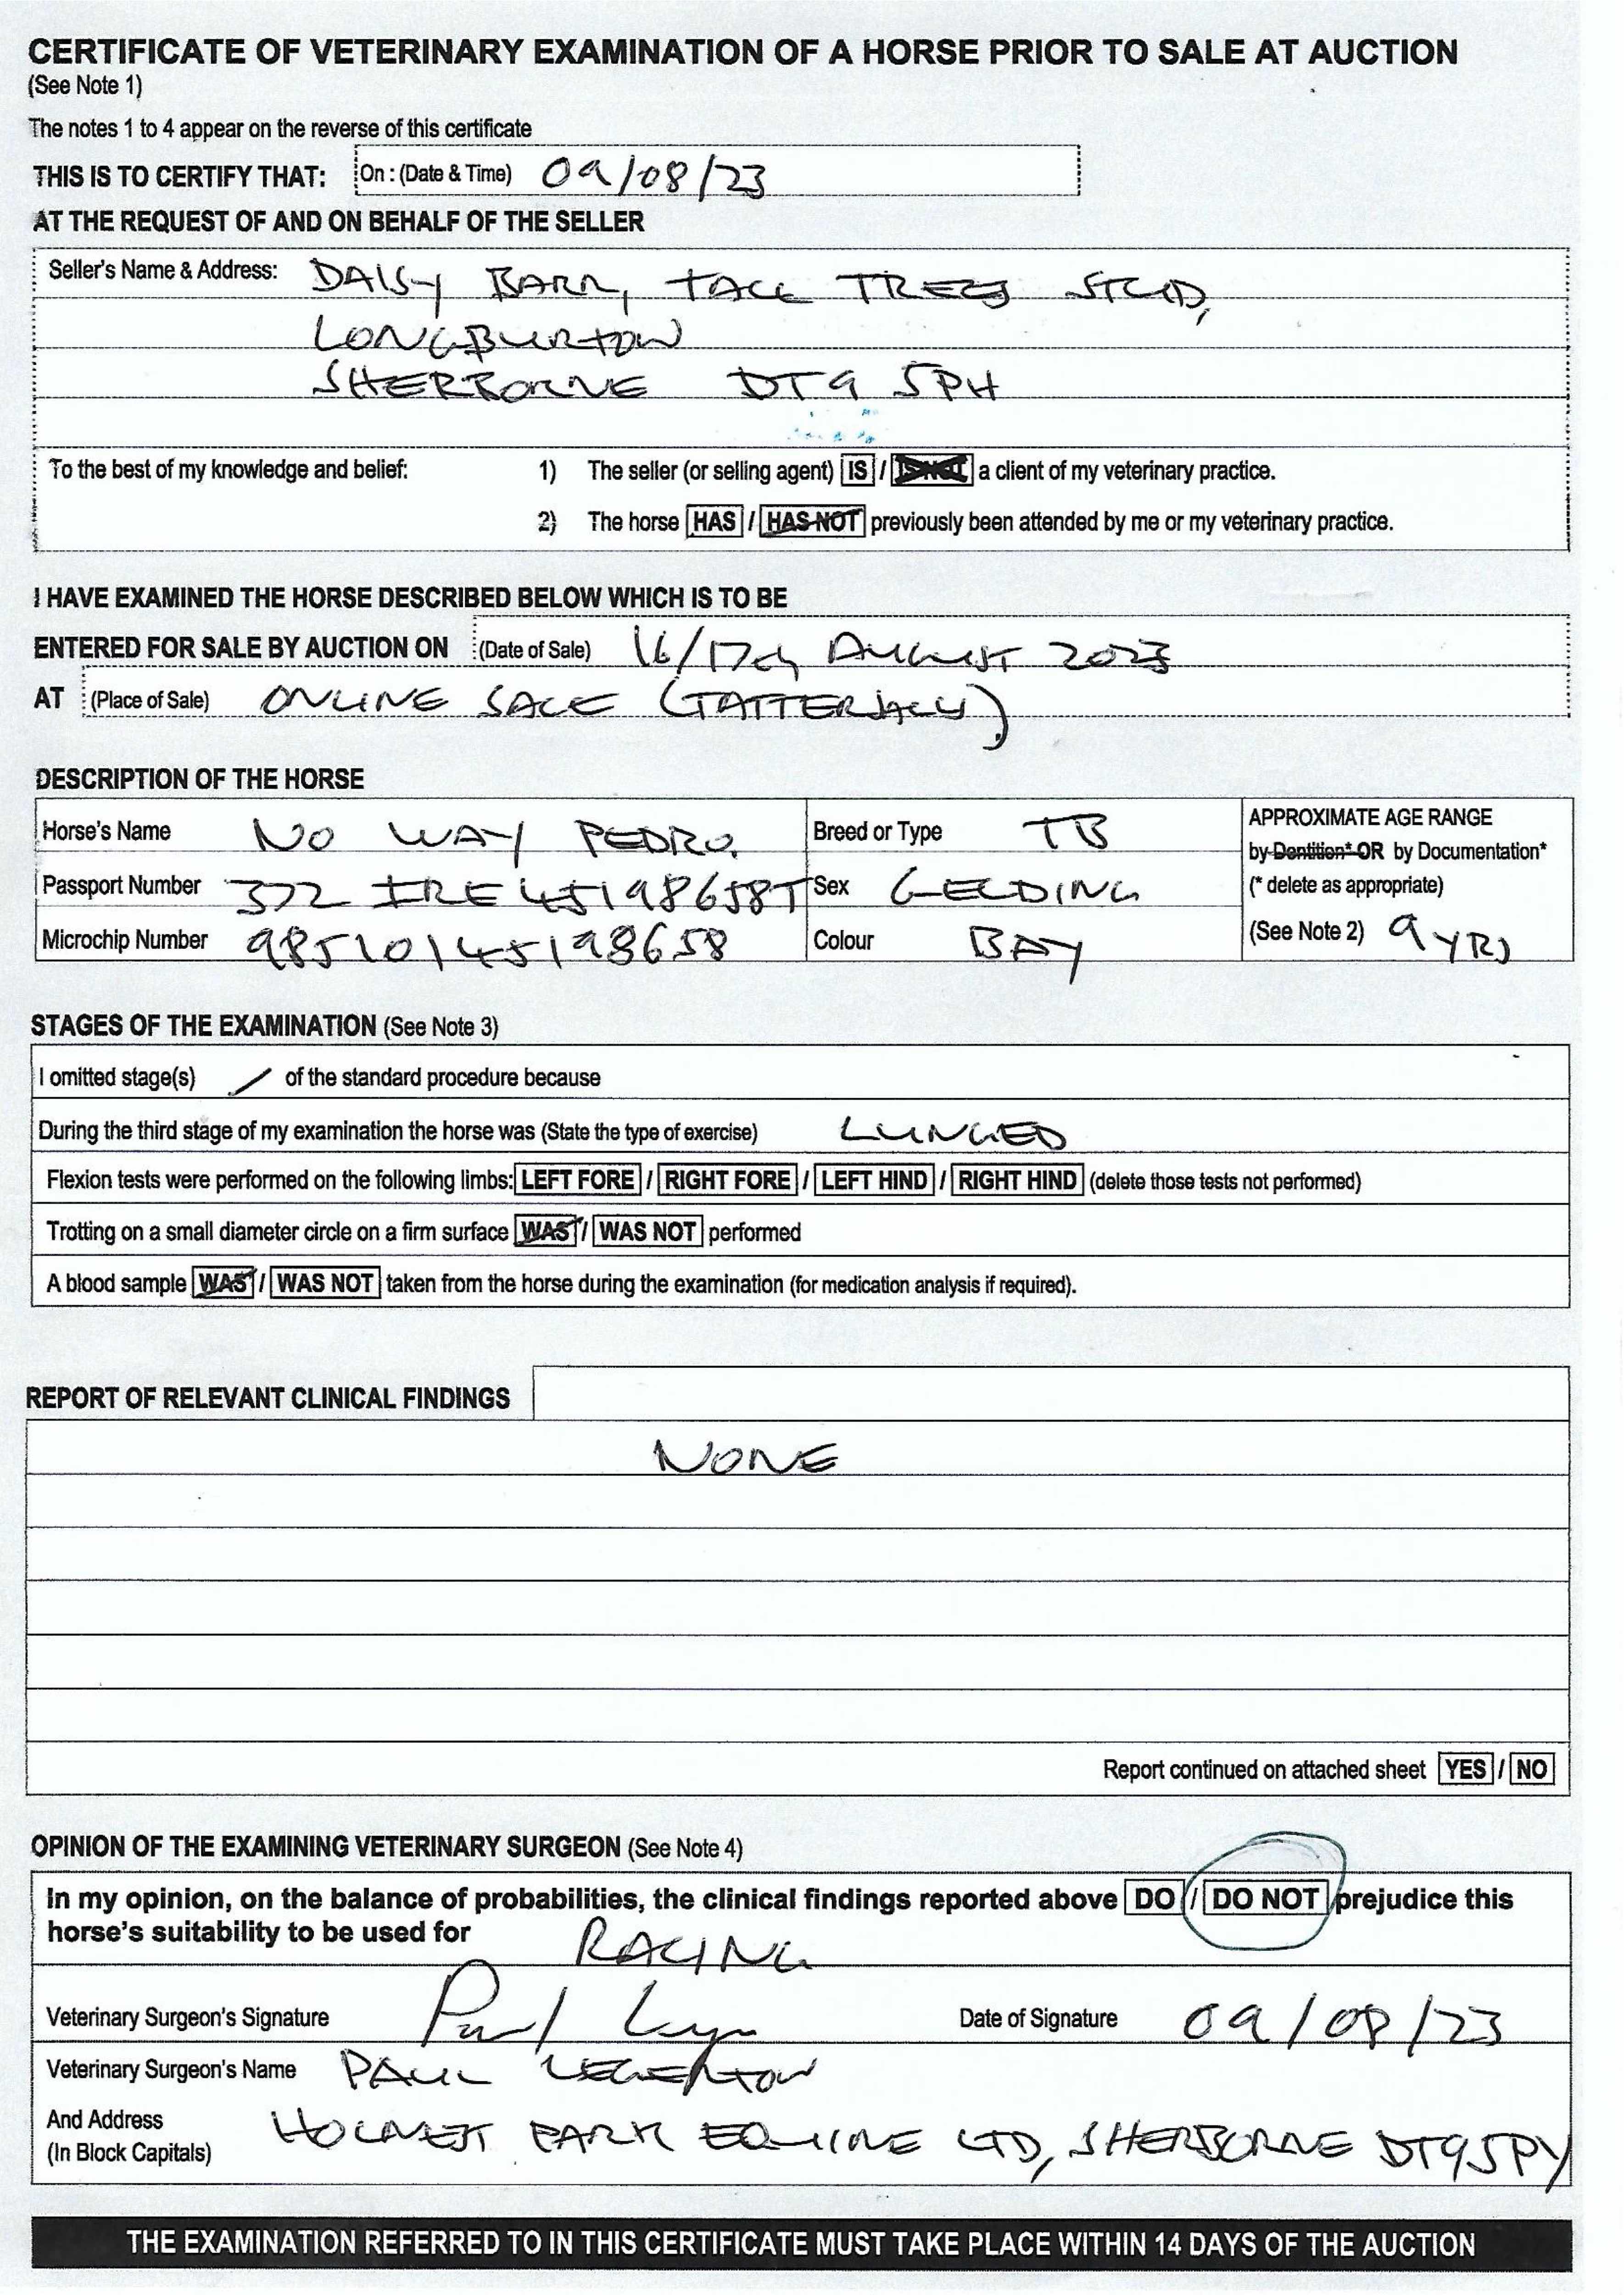 CERTIFICATE OF VETERINARY EXAMINATION OF A HORSE PRIOR TO SALE AT AUCTION
(See Note 1)
The notes 1 to 4 appear on the reverse of this certificate
THIS IS TO CERTIFY THAT: On : (Date & Time) 09/08/23
AT THE REQUEST OF AND ON BEHALF OF THE SELLER
Seller's Name & Address: DAISY BARN, TALL TREES STUD,
LONGBURTON
SHERBORNE DT9 5PH
To the best of my knowledge and belief: 1) The seller (or selling agent) IS / IS NOT a client of my veterinary practice.
2) The horse HAS / HAS NOT previously been attended by me or my veterinary practice.
I HAVE EXAMINED THE HORSE DESCRIBED BELOW WHICH IS TO BE
ENTERED FOR SALE BY AUCTION ON (Date of Sale) 16/17th AUGUST 2023
AT (Place of Sale) ONLINE SALE (TATTERSALLS)
DESCRIPTION OF THE HORSE
Horse's Name NO WAY PEDRO. Breed or Type TB APPROXIMATE AGE RANGE
by Dentition* OR by Documentation*
Passport Number 372 IRE 45198658T Sex GELDING (* delete as appropriate)
Microchip Number 98510145198658 Colour BAY (See Note 2) 9 YRS
STAGES OF THE EXAMINATION (See Note 3)
I omitted stage(s) / of the standard procedure because
During the third stage of my examination the horse was (State the type of exercise) LUNGED
Flexion tests were performed on the following limbs: LEFT FORE / RIGHT FORE / LEFT HIND / RIGHT HIND (delete those tests not performed)
Trotting on a small diameter circle on a firm surface WAS / WAS NOT performed
A blood sample WAS / WAS NOT taken from the horse during the examination (for medication analysis if required).
REPORT OF RELEVANT CLINICAL FINDINGS
NONE
Report continued on attached sheet YES / NO
OPINION OF THE EXAMINING VETERINARY SURGEON (See Note 4)
In my opinion, on the balance of probabilities, the clinical findings reported above DO / DO NOT prejudice this
horse's suitability to be used for RACING
Veterinary Surgeon's Signature Date of Signature 09/08/23
Veterinary Surgeon's Name PAUL
And Address
(In Block Capitals) PARK EQUINE LTD, SHERBORNE DT9 5PY
THE EXAMINATION REFERRED TO IN THIS CERTIFICATE MUST TAKE PLACE WITHIN 14 DAYS OF THE AUCTION